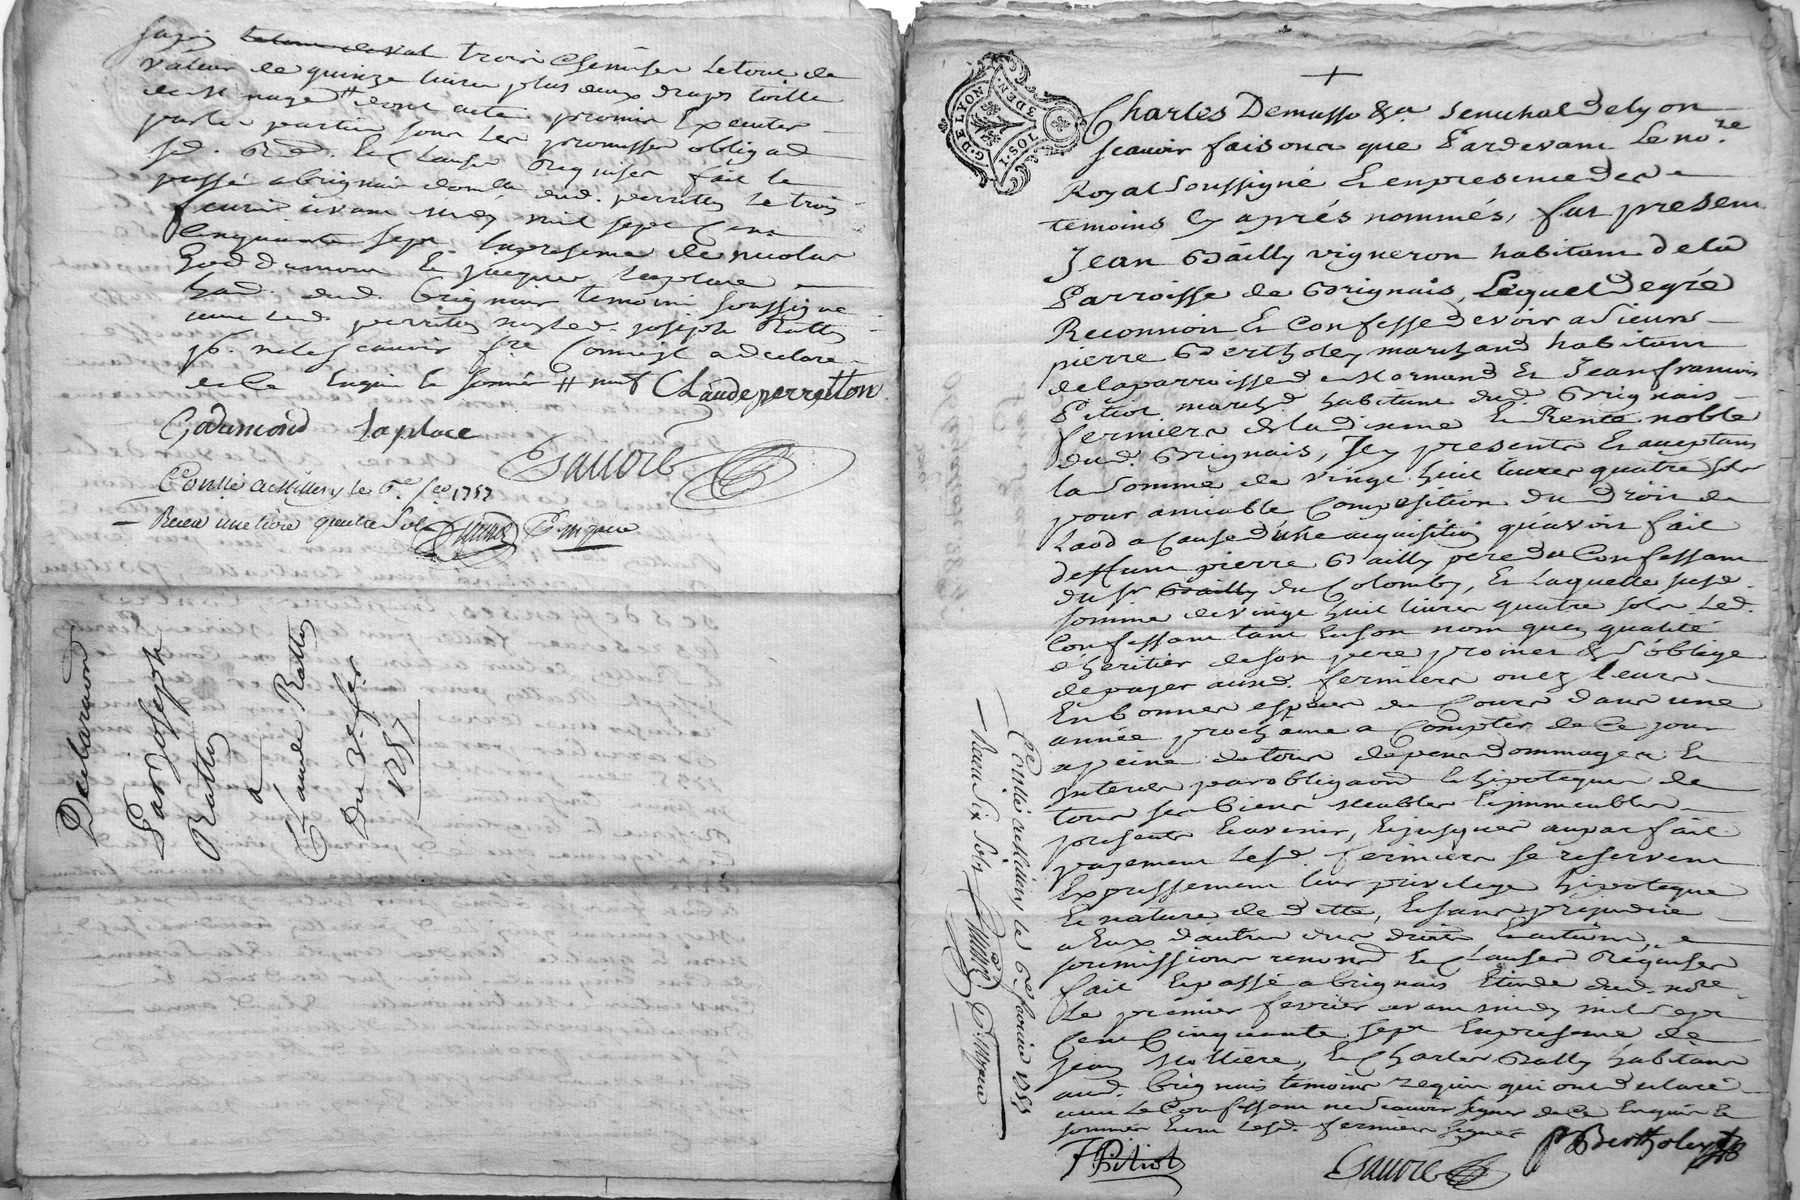 trois chemises le tout de
valeur de quinze livres plus deux draps toille
de menage # dont acte promis Executer
par les parties sous les promisses obligaõn
passé a brignais domlle dud. perretton le trois
feuvrier avant midy mil sept Cent
Cinquante sept En presence de nicolas
Godd'amour Et jacques Laplace
had. dud. brignais temoins soussignés
avec led. perretton non led. joseph Ratton
pr. ne le scavoir fre Comme jl a declaré
de Ce Enquis Et sommé # Claude perretton
Godamond Laplace
Sauvré
Conllé a Millery le 6e. feo. 1757
Receu une livre quatre sols
Declaration
Par Joseph
Ratton
a
Claude Ratton
Du 3e. fer.
1757
G. DE LYON
1. SOL. 3 DEN.
Charles Demasso &a Senechal De lyon
scavoir faisons que Pardevant Le nore.
Royal soussigné Et en presence des
temoins Cy après nommés, fut present
Jean Bailly vigneron habitant De la
Parroisse de Brignais, Lequel De gré
Reconnoit Et Confesse Devoir a sieurs
pierre Bertholey marchand habitant
de la parroisse de Mornand Et Jean francois
Pitiot marchd. habitant dud. Brignais
fermiers de la dixme Et Rente noble
dud. Brignais, Jcy presents Et acceptans
la somme de vingt huit livres quatre sols
pour amiable Composition du Droit de
Laod a Cause d'une acquisition qu'avoit fait
Deffunt pierre Bailly pere du Confessant
du sr Bailly du Colomby, Et Laquelle susd.
somme de vingt huit livres quatre sols Led.
Confessant tant En son nom qu'en qualité
d'heritier de son pere promet & s'oblige
de payer ausd. fermiers ou ez leurs
En bonnes especes de Cours dans une
année prochaine a Compter de Ce jour
a peine de tous depens dommages Et
Interets par obligaõn Et hipoteques de
tous ses biens meubles Et jmmeubles
presents Et avenir, Et jusques au parfait
payement Lesd. fermiers se reservent
Expressement leur privilege hipoteque
Et nature de dette, Et sans prejudice
a Eux d'autres dus droits Et actions,
soumissions renonõns Et Clauses Requises
fait Et passé a brignais Etude dud. nore.
Le premier fevrier avant midy mil sept
Cent Cinquante sept En presence de
Jean Mollière, Et Charles Bally habitans
aud. brignais temoins requis qui ont declaré
avec Le Confessant ne scavoir signer de Ce Enquis Et
sommés Et ont Lesd. fermiers signés
Pitiot
Sauvré
P Bertholey
Conllé a Millery le 6e. fevrier 1757
Receu six sols